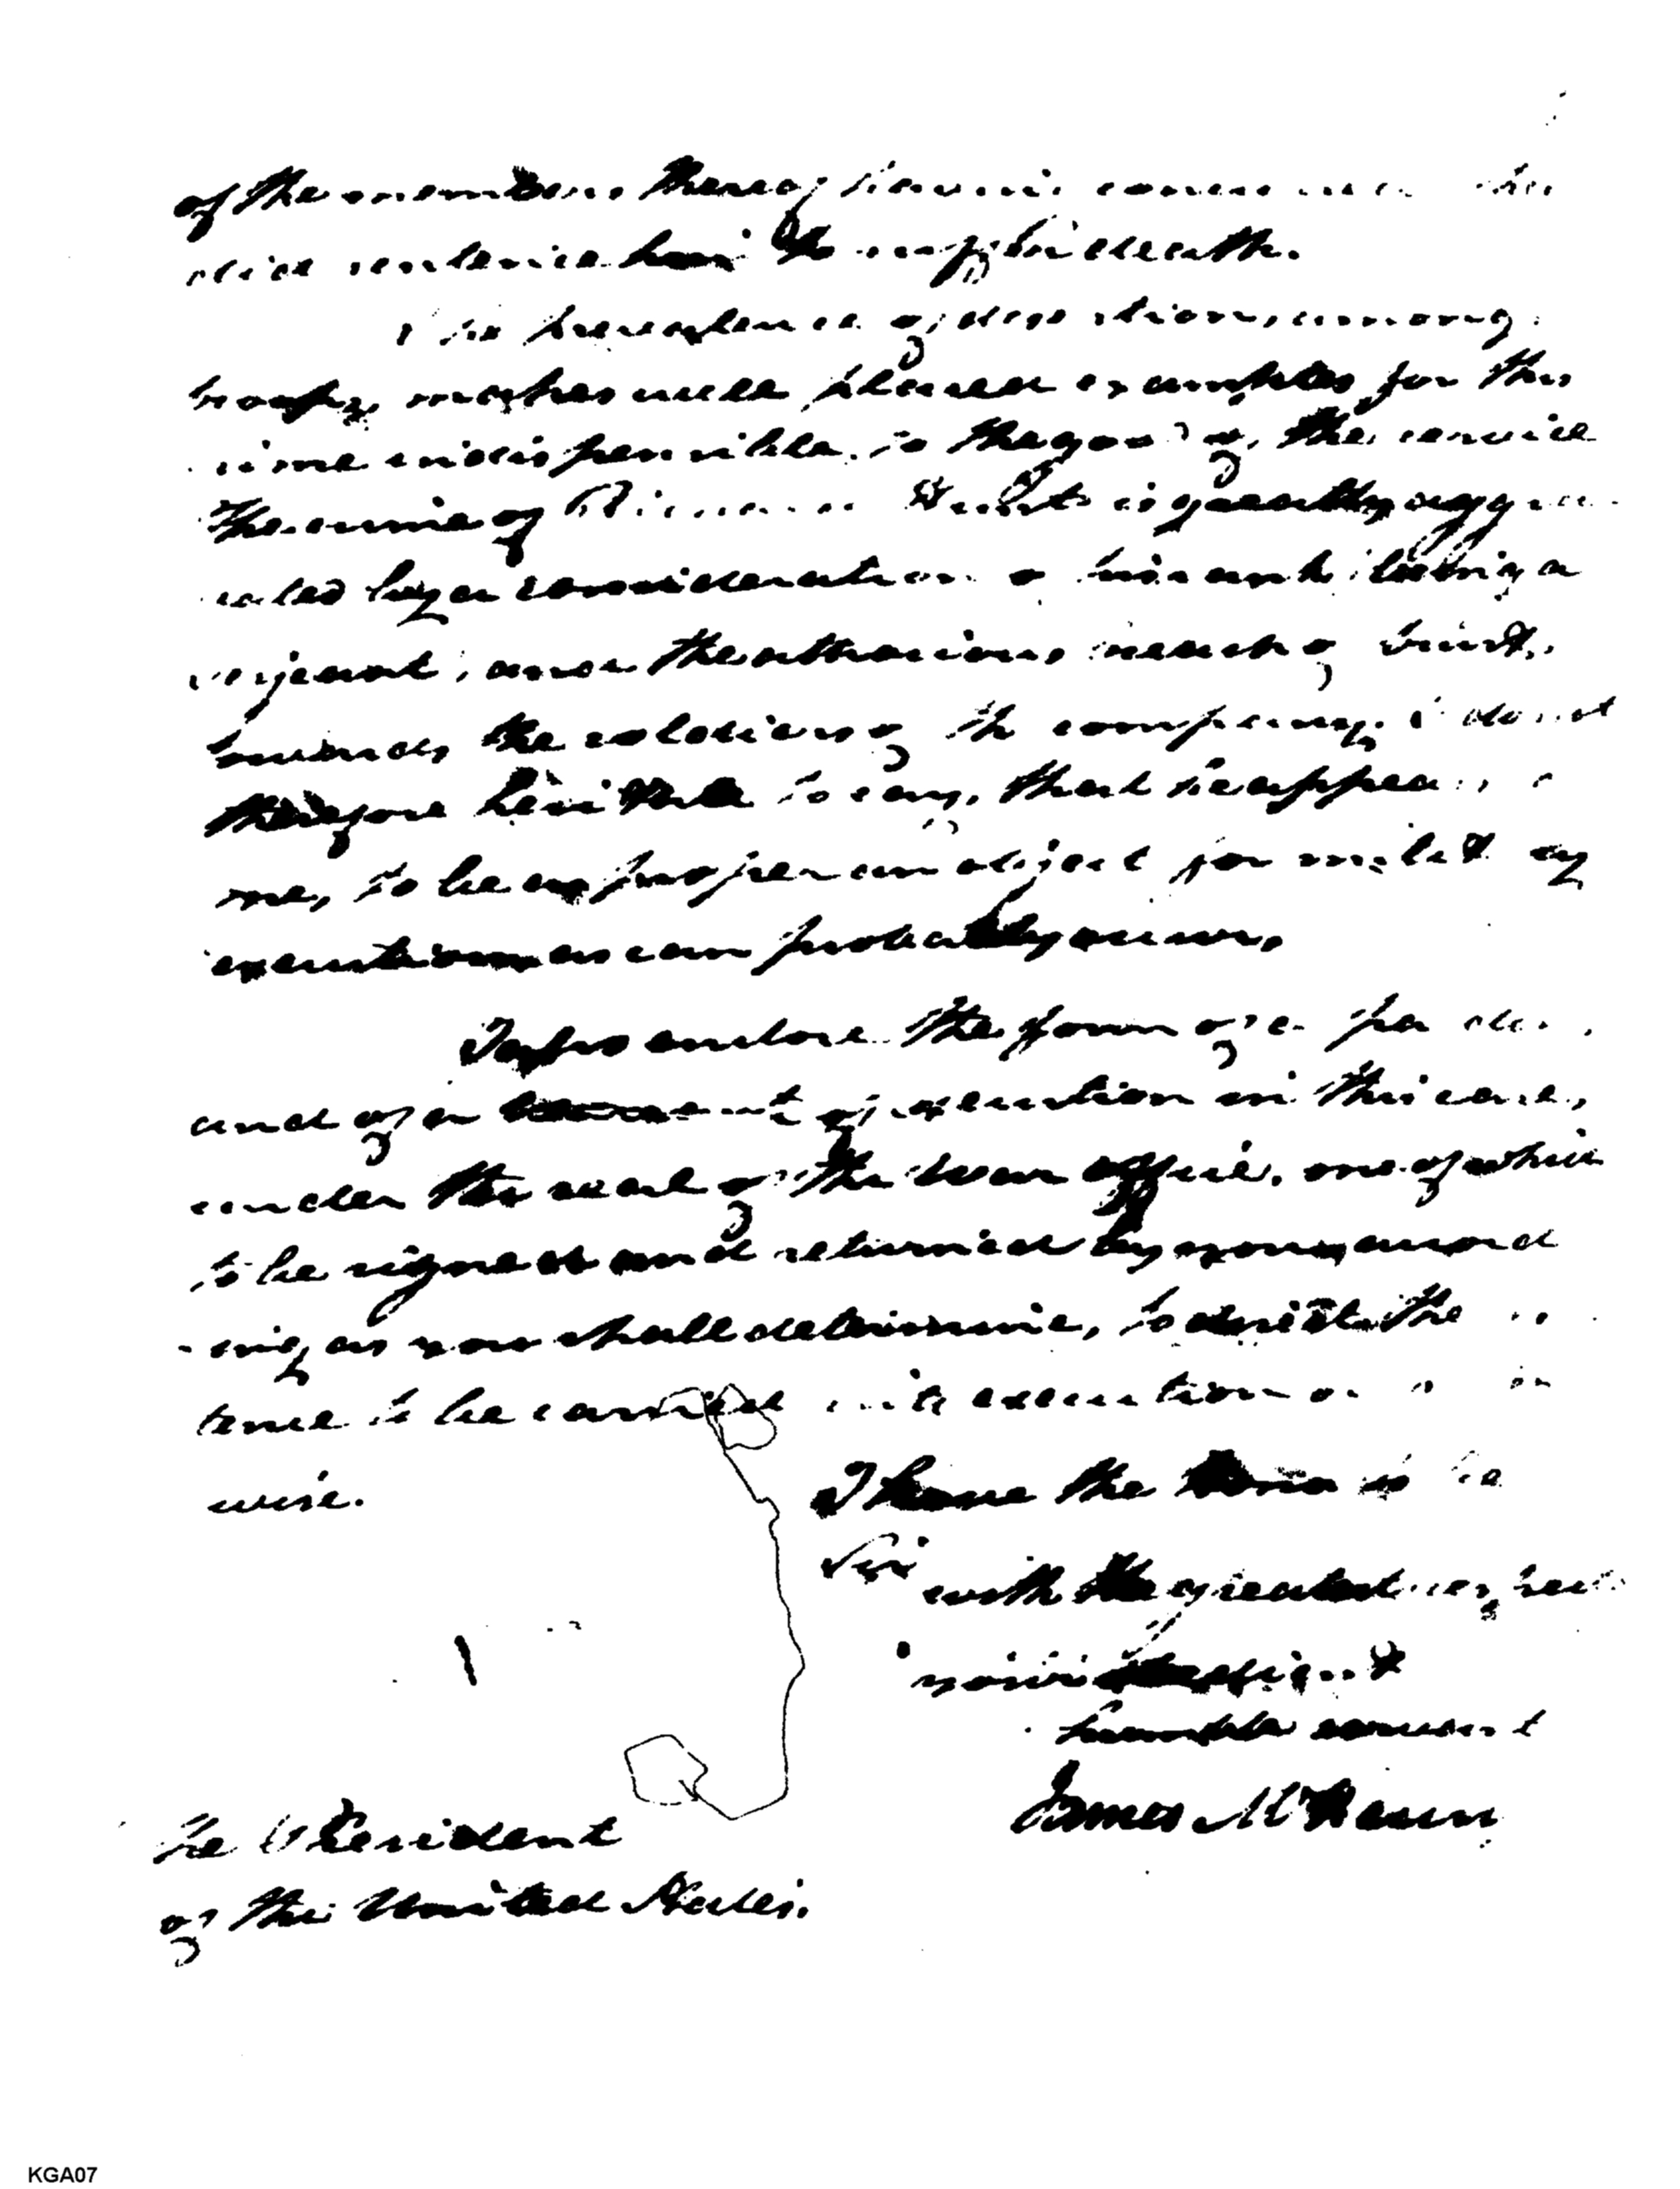 of the members thereof having concurred
did sentence him to suffer death.
The prevalence of desertion, among
troops, makes well placed examples for this
crime indispensible to the good of the service
The crime of is greatly aggra-
vated by a consideration of his
serjeant, and the atrocious of
towards the soldiers of the company; I do not
therefore hesitate to say, that he appears
me, to be as proper an object for
execution as can probably occur.
I also enclose the form of a pardon
and of a warrant of execution in this case,
under the seal of the War office, one of which
to be signed and returned by you, accord
-ing as you shall determine, to direct the
tence to be carried into execution or
wise.
I have the honor to be
Sir
with the greatest respect
your obedient
humble servant
James McHenry
The President
of the United States.
KGA07